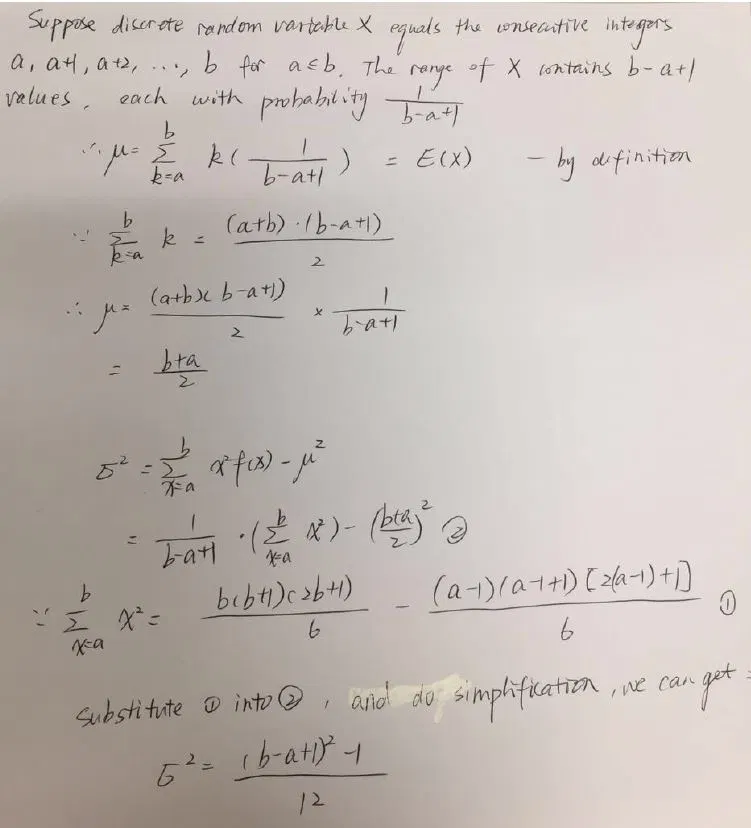 Suppose discrete random variable X equals the consecutive integers
a, a+1, a+2, ..., b for a≤b. The range of X contains b-a+1
values, each with probability 1/(b-a+1)
∴ μ = Σ_{k=a}^{b} k( 1/(b-a+1) ) = E(X) - by definition
∵ Σ_{k=a}^{b} k = (a+b)·(b-a+1)/2
∴ μ = (a+b)(b-a+1)/2 × 1/(b-a+1)
= (b+a)/2
σ² = Σ_{x=a}^{b} x² f(x) - μ²
= 1/(b-a+1) · (Σ_{x=a}^{b} x²) - ((b+a)/2)² ②
∵ Σ_{x=a}^{b} x² = b(b+1)(2b+1)/6 - (a-1)(a-1+1)[2(a-1)+1]/6 ①
substitute ① into ②, and do simplification, we can get:
σ² = ((b-a+1)² -1)/12